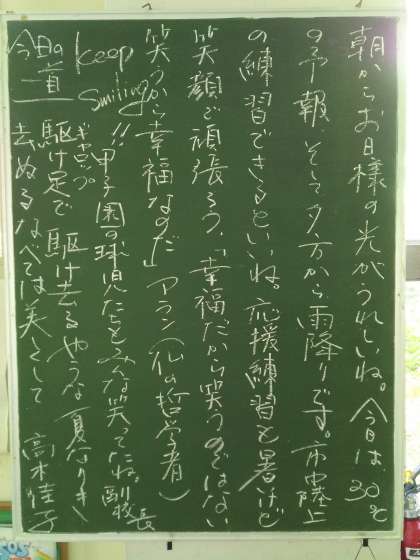 朝からお日様の光がうれしいね。今日は、30℃
の予報、そして夕方から雨降りです。市中陸上
の練習できるといいね。応援練習も暑いけど
笑顔で頑張ろう。「幸福だから笑うのではない
笑うから幸福なのだ」アラン(仏の哲学者)
Keep
Smiling!!
甲子園の球児たちもみんな笑ってたね。副校長
今日の一首
ギャロップ
駆け足で駆け去るやうな夏なりき
去ぬるなべては美しとして 高木佳子